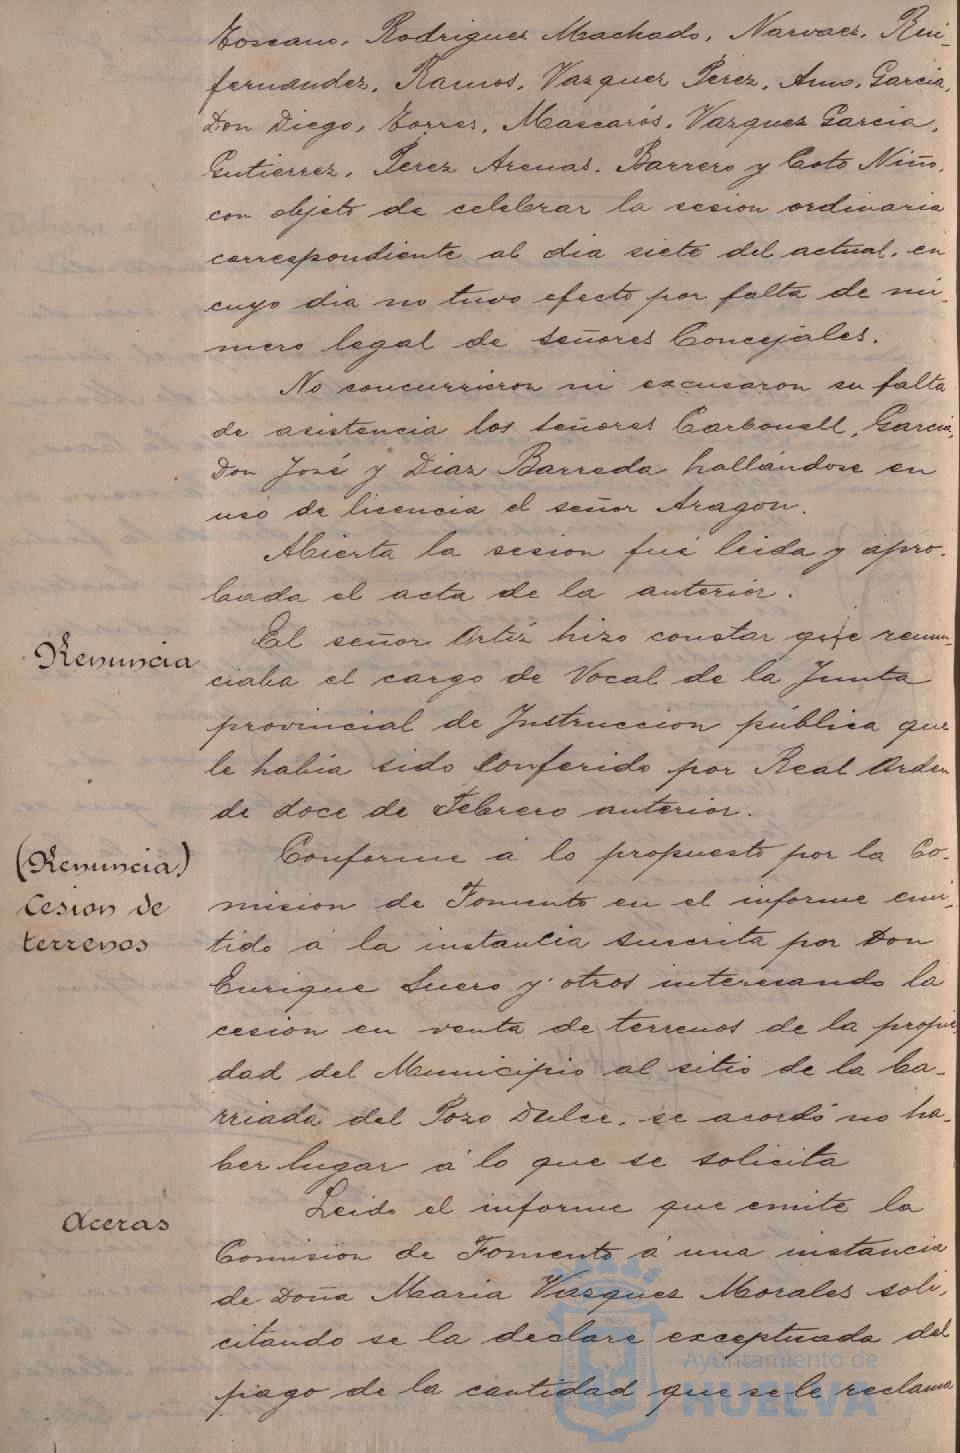 Toscano, Rodriguez Machado, Narvaez, Rui-
fernandez, Ramos, Vazquez Perez, Amo, Garcia,
Don Diego, Torres, Mascarós, Vazquez Garcia,
Gutierrez, Perez Arenas, Barrero y Coto Niño,
con objeto de celebrar la sesion ordinaria
correspondiente al dia siete del actual, en
cuyo dia no tuvo efecto por falta de nú-
mero legal de señores Concejales.
No concurrieron ni excusaron su falta
de asistencia los señores Carbonell, Garcia,
Don José y Diaz Barreda hallándose en
uso de licencia el señor Aragon.
Abierta la sesion fué leida y apro-
bada el acta de la anterior.
Renuncia
El señor Ortiz hizo constar que renun-
ciaba el cargo de Vocal de la Junta
provincial de Instruccion pública que
le habia sido conferido por Real Orden
de doce de Febrero anterior.
(Renuncia)
Cesion de
terrenos
Conforme á lo propuesto por la Co-
mision de Fomento en el informe emi-
tido á la instancia suscrita por Don
Enrique Suero y otros interesando la
cesion en venta de terrenos de la propie-
dad del Municipio al sitio de la ba-
rriada del Pozo Dulce, se acordó no ha-
ber lugar á lo que se solicita
Aceras
Leido el informe que emite la
Comision de Fomento á una instancia
de Doña Maria Vazquez Morales soli-
citando se la declare exceptuada del
pago de la cantidad que se le reclama
Ayuntamiento de
HUELVA